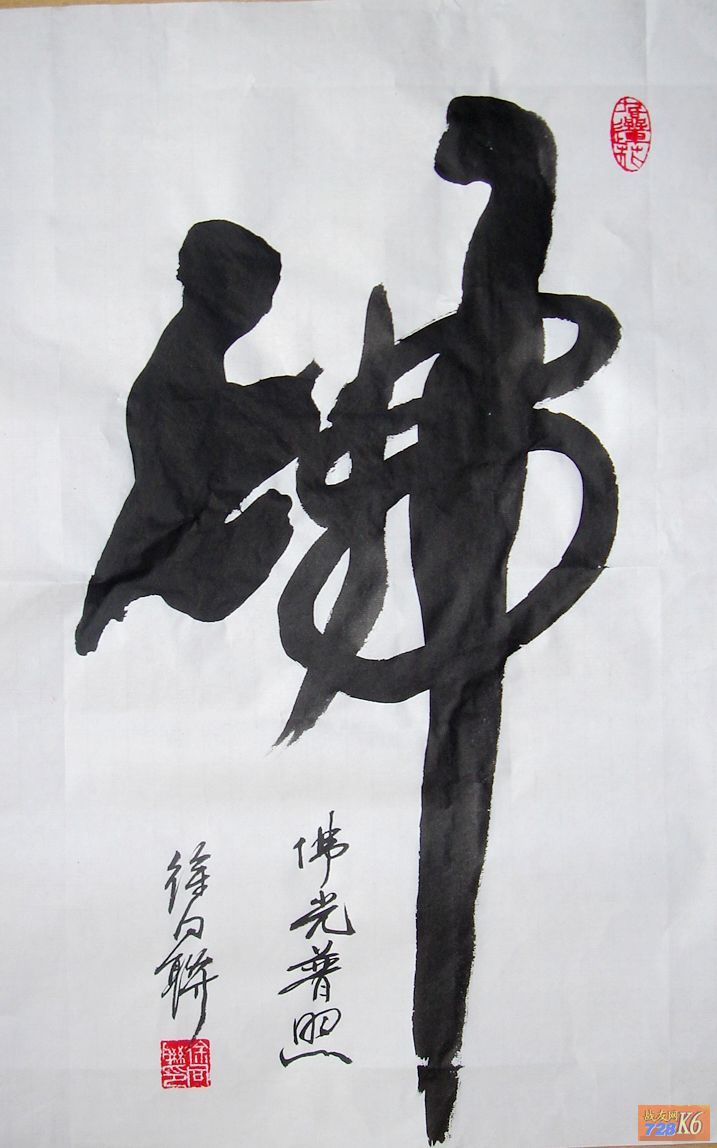 佛
佛光普照
徐同聯
战友网
728K6